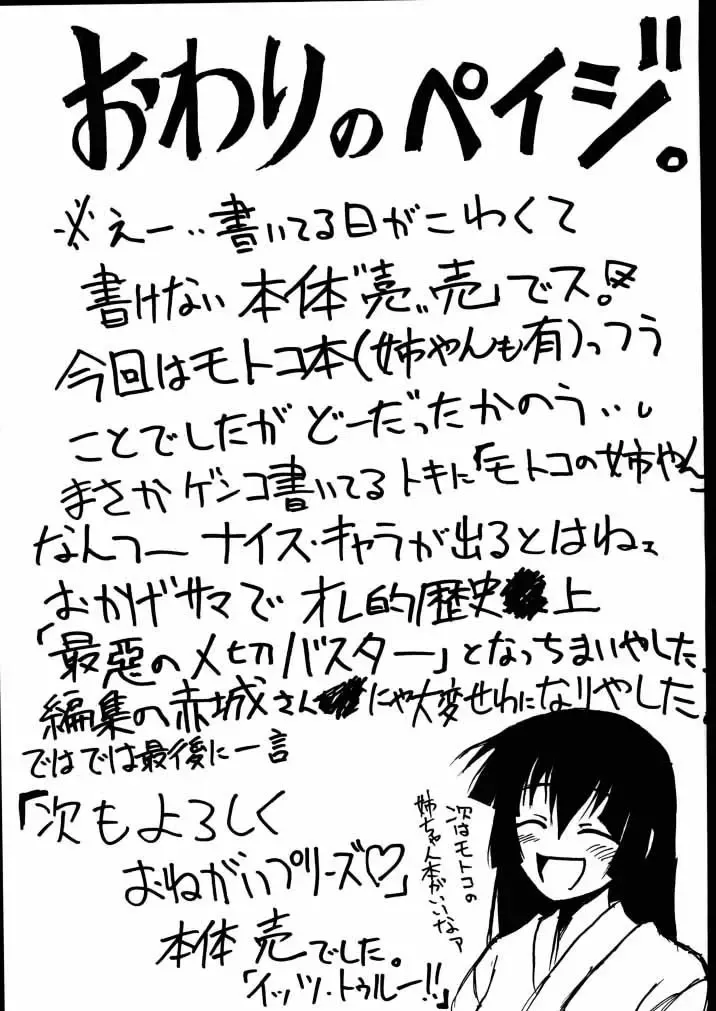 おわりのペイジ。
※えー‥書いてる日がこわくて
書けない本体"売"売」でス。
今回はモトコ本(姉やんも有)っつう
ことでしたが どーだったかのう‥
まさかゲンコ書いてるトキに「モトコの姉やん」
なんつーナイス・キャラが出るとはねェ
おかげサマで オレ的歴史上
「最悪の〆切バスター」となっちまいやした。
編集の赤城さんにゃ大変せわになりやした。
ではでは最後に一言
「次もよろしく
おねがいプリーズ♡」
本体 売でした。
「イッツ・トゥルー!!」
次はモトコの
姉ちゃん本がいいなァ